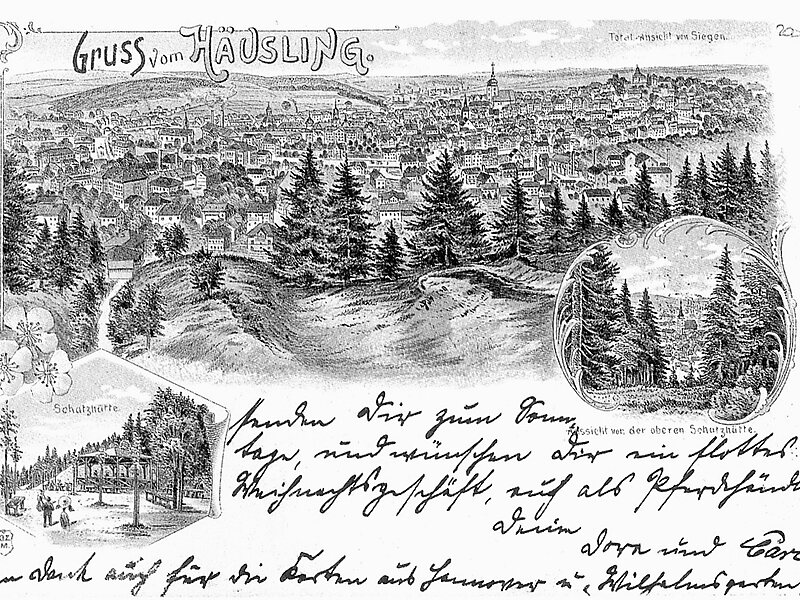 Gruss vom HÄUSLING.
Total-Ansicht von Siegen.
20.
Schutzhütte.
Aussicht von der oberen Schutzhütte.
senden Dir zum Sonn
tage, und wünschen Dir ein flottes
Weihnachtsgeschäft, auch als Pferdehändl
Deine
Dora und
Dank auch für die Karten aus Hannover u. Wilhelmsgarten